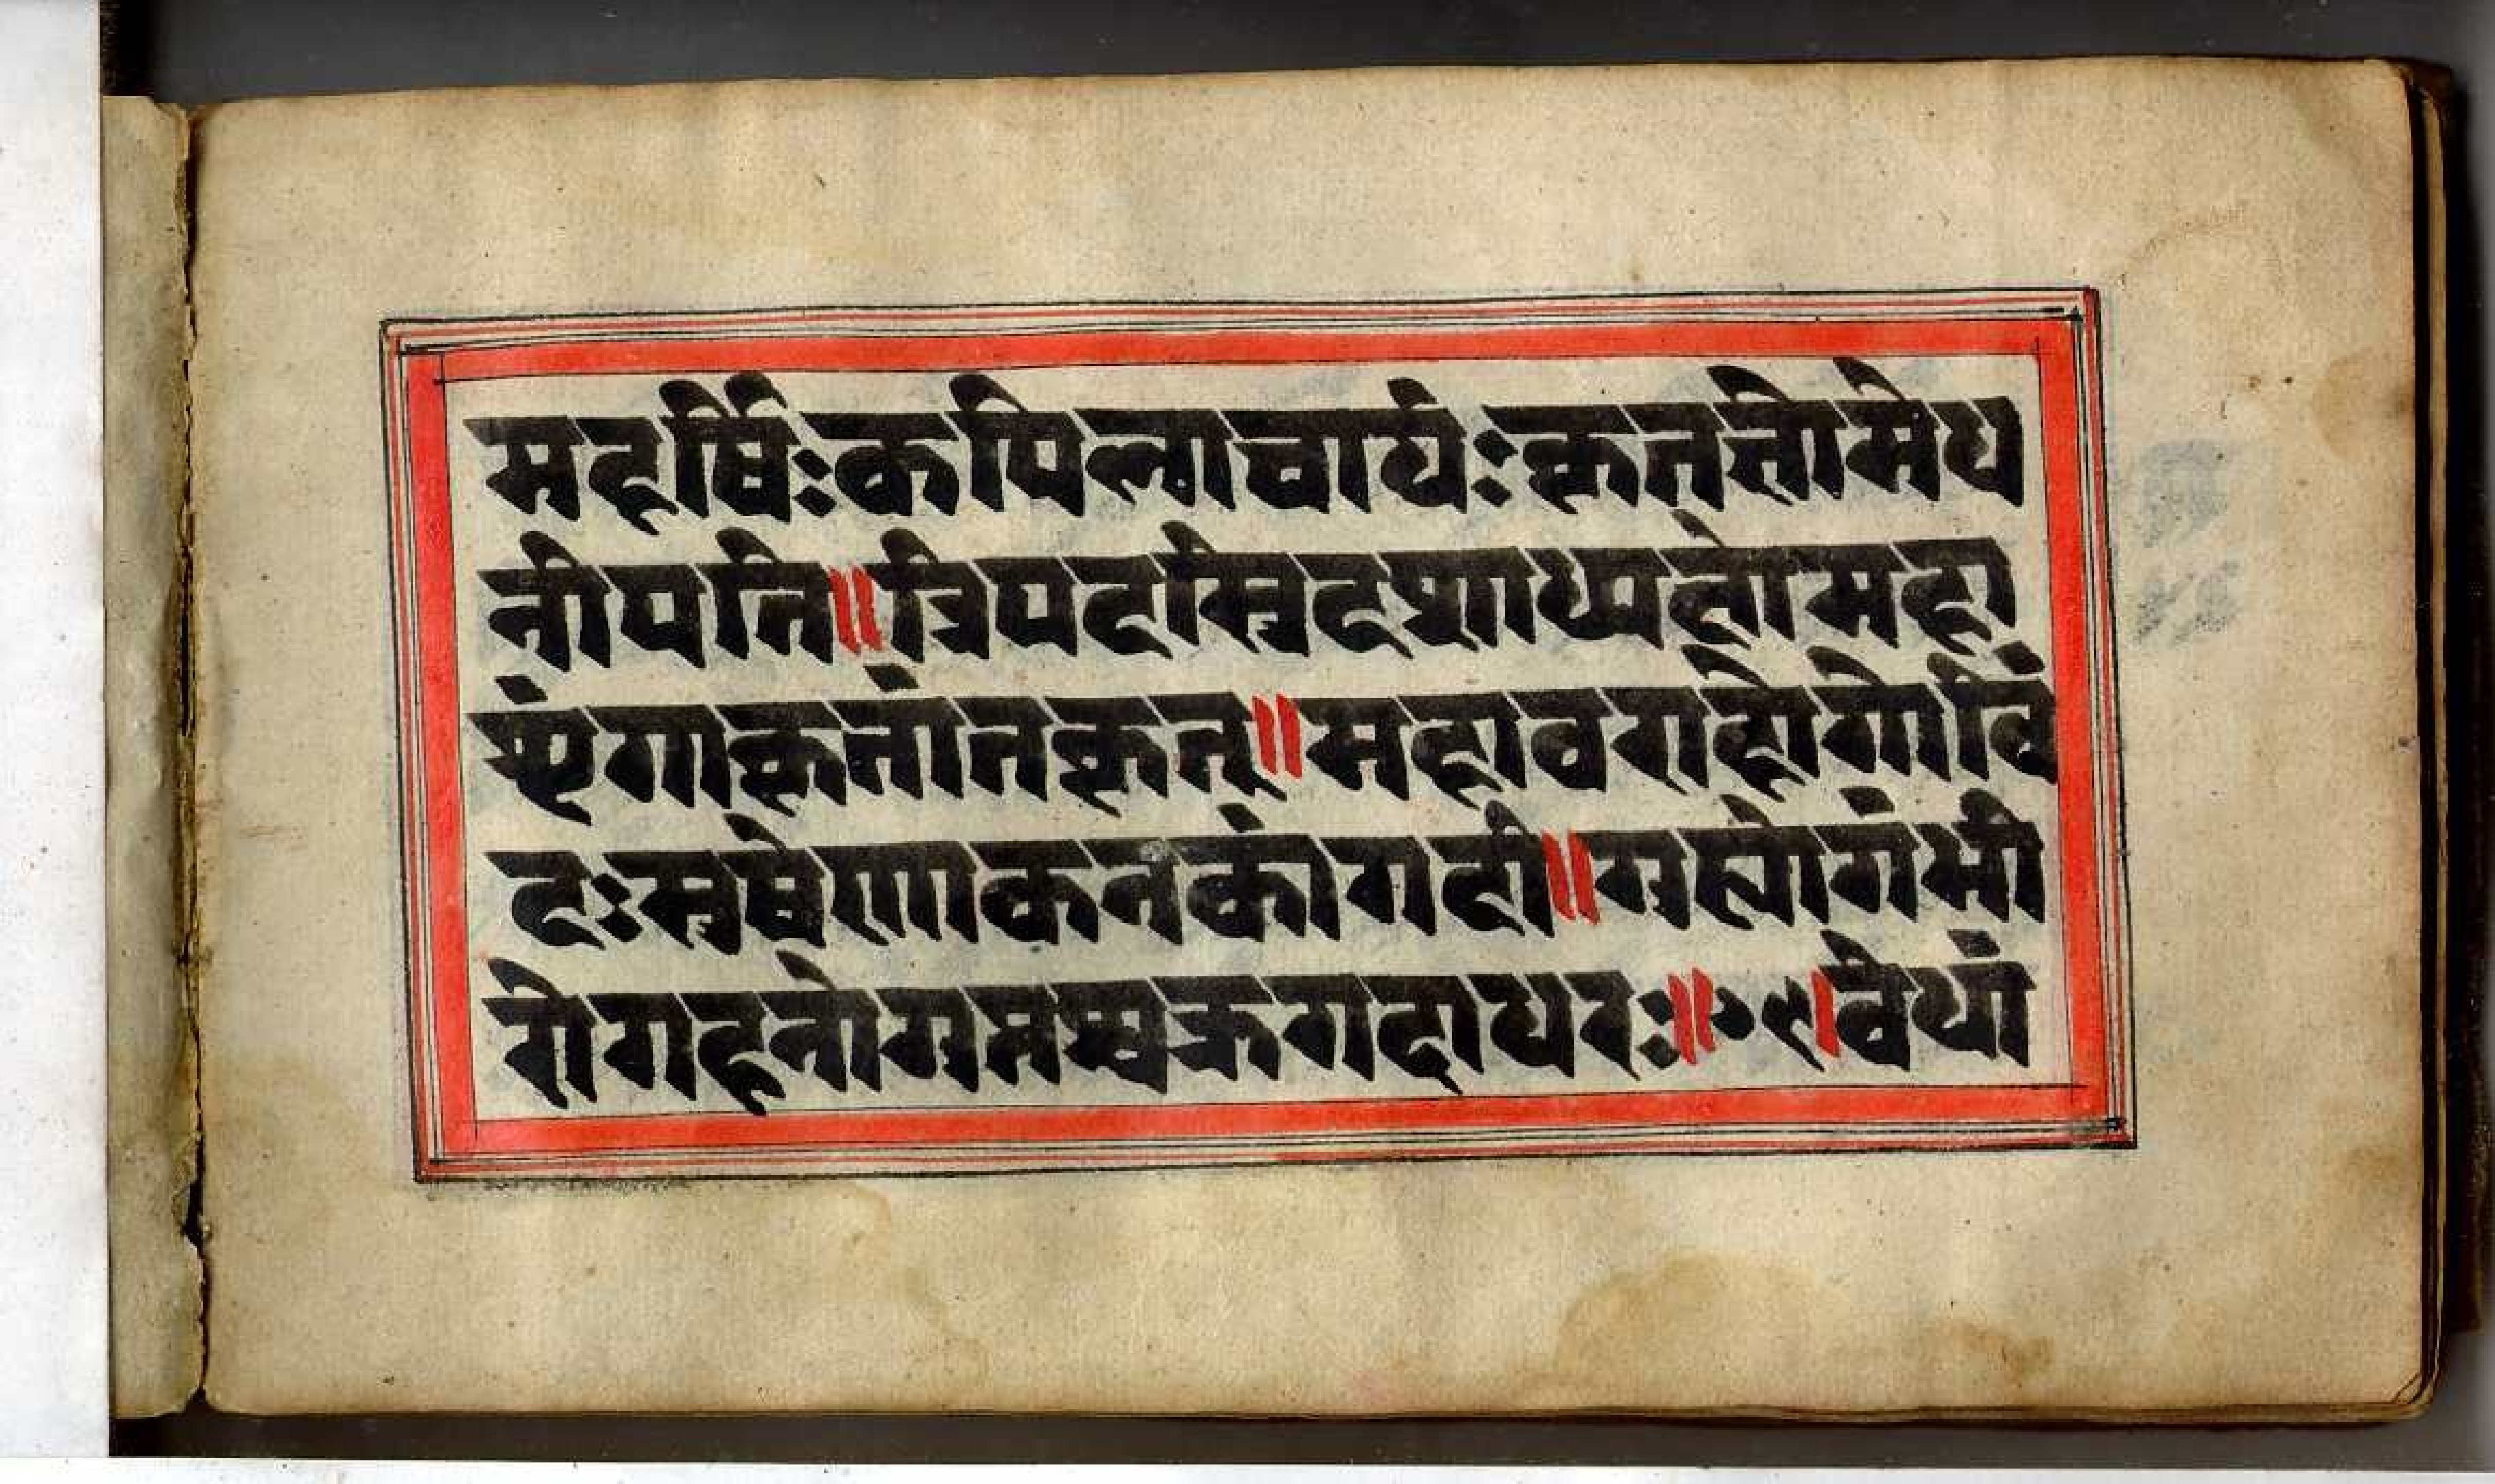 महर्षिः कपिलाचार्यः कृतज्ञो मेध
नीपति॥ त्रिपदस्त्रिदशाध्यक्षो महा
शृंगाकृतांतकृत्॥ महावराहो गोविं
दः सुषेणा कनकांगदी॥ गुह्यो गंभी
रो गहनो गुप्तश्चक्रगदाधरः॥७१। वेधां